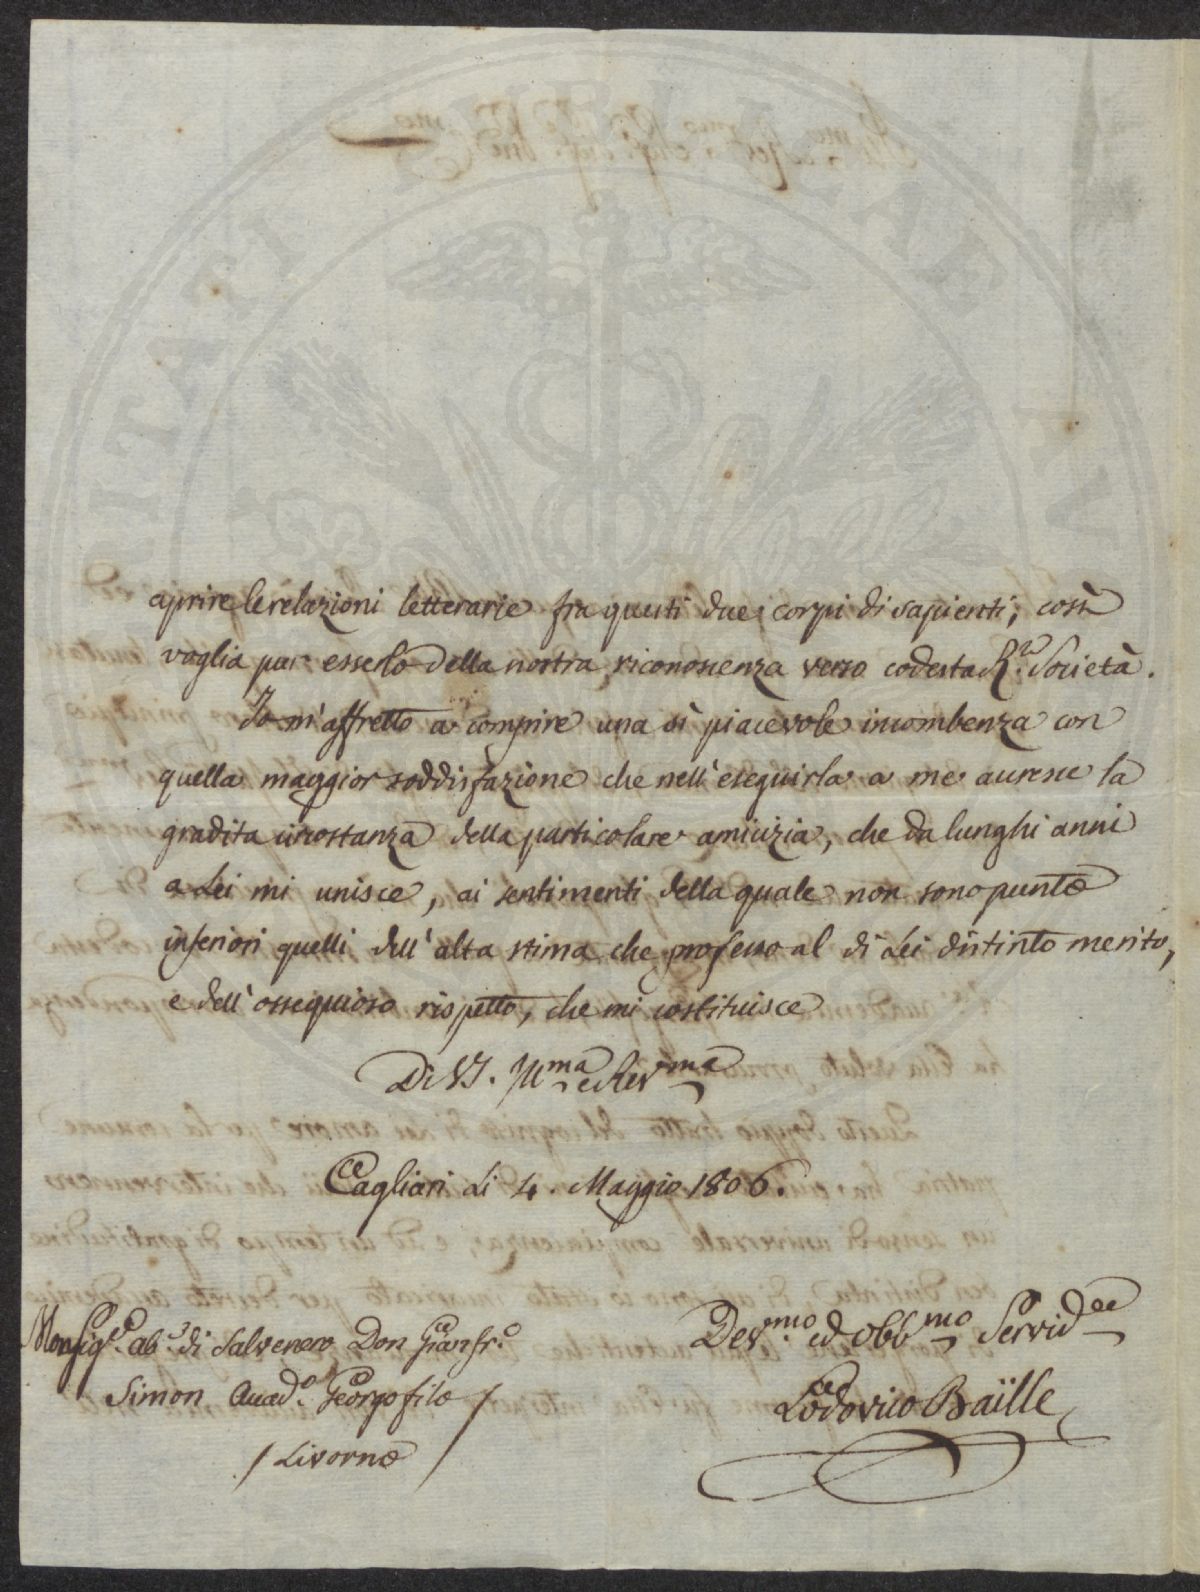 aprire le relazioni letterarie fra questi due corpi di sapienti, così
voglia pur esserlo della nostra riconoscenza verso codesta R.le Società.
Io m'affretto a compire una sì piacevole incombenza con
quella maggior soddisfazione che nell'eseguirla a me accresce la
gradita circostanza della particolare amicizia, che da lunghi anni
a Lei mi unisce, ai sentimenti della quale non sono punto
inferiori quelli dell'alta stima che professo al di Lei distinto merito,
e dell'ossequioso rispetto, che mi costituisce
Di V.S. Ill.ma e Rev.ma
Cagliari li 4. Maggio 1806.
Monsig.r ab.e di Salvenero Don Gianfr.o
Simon Accad.o Georgofilo
/ Livorno /
Dev.mo ed obb.mo Servid.e
Lodovico Baïlle